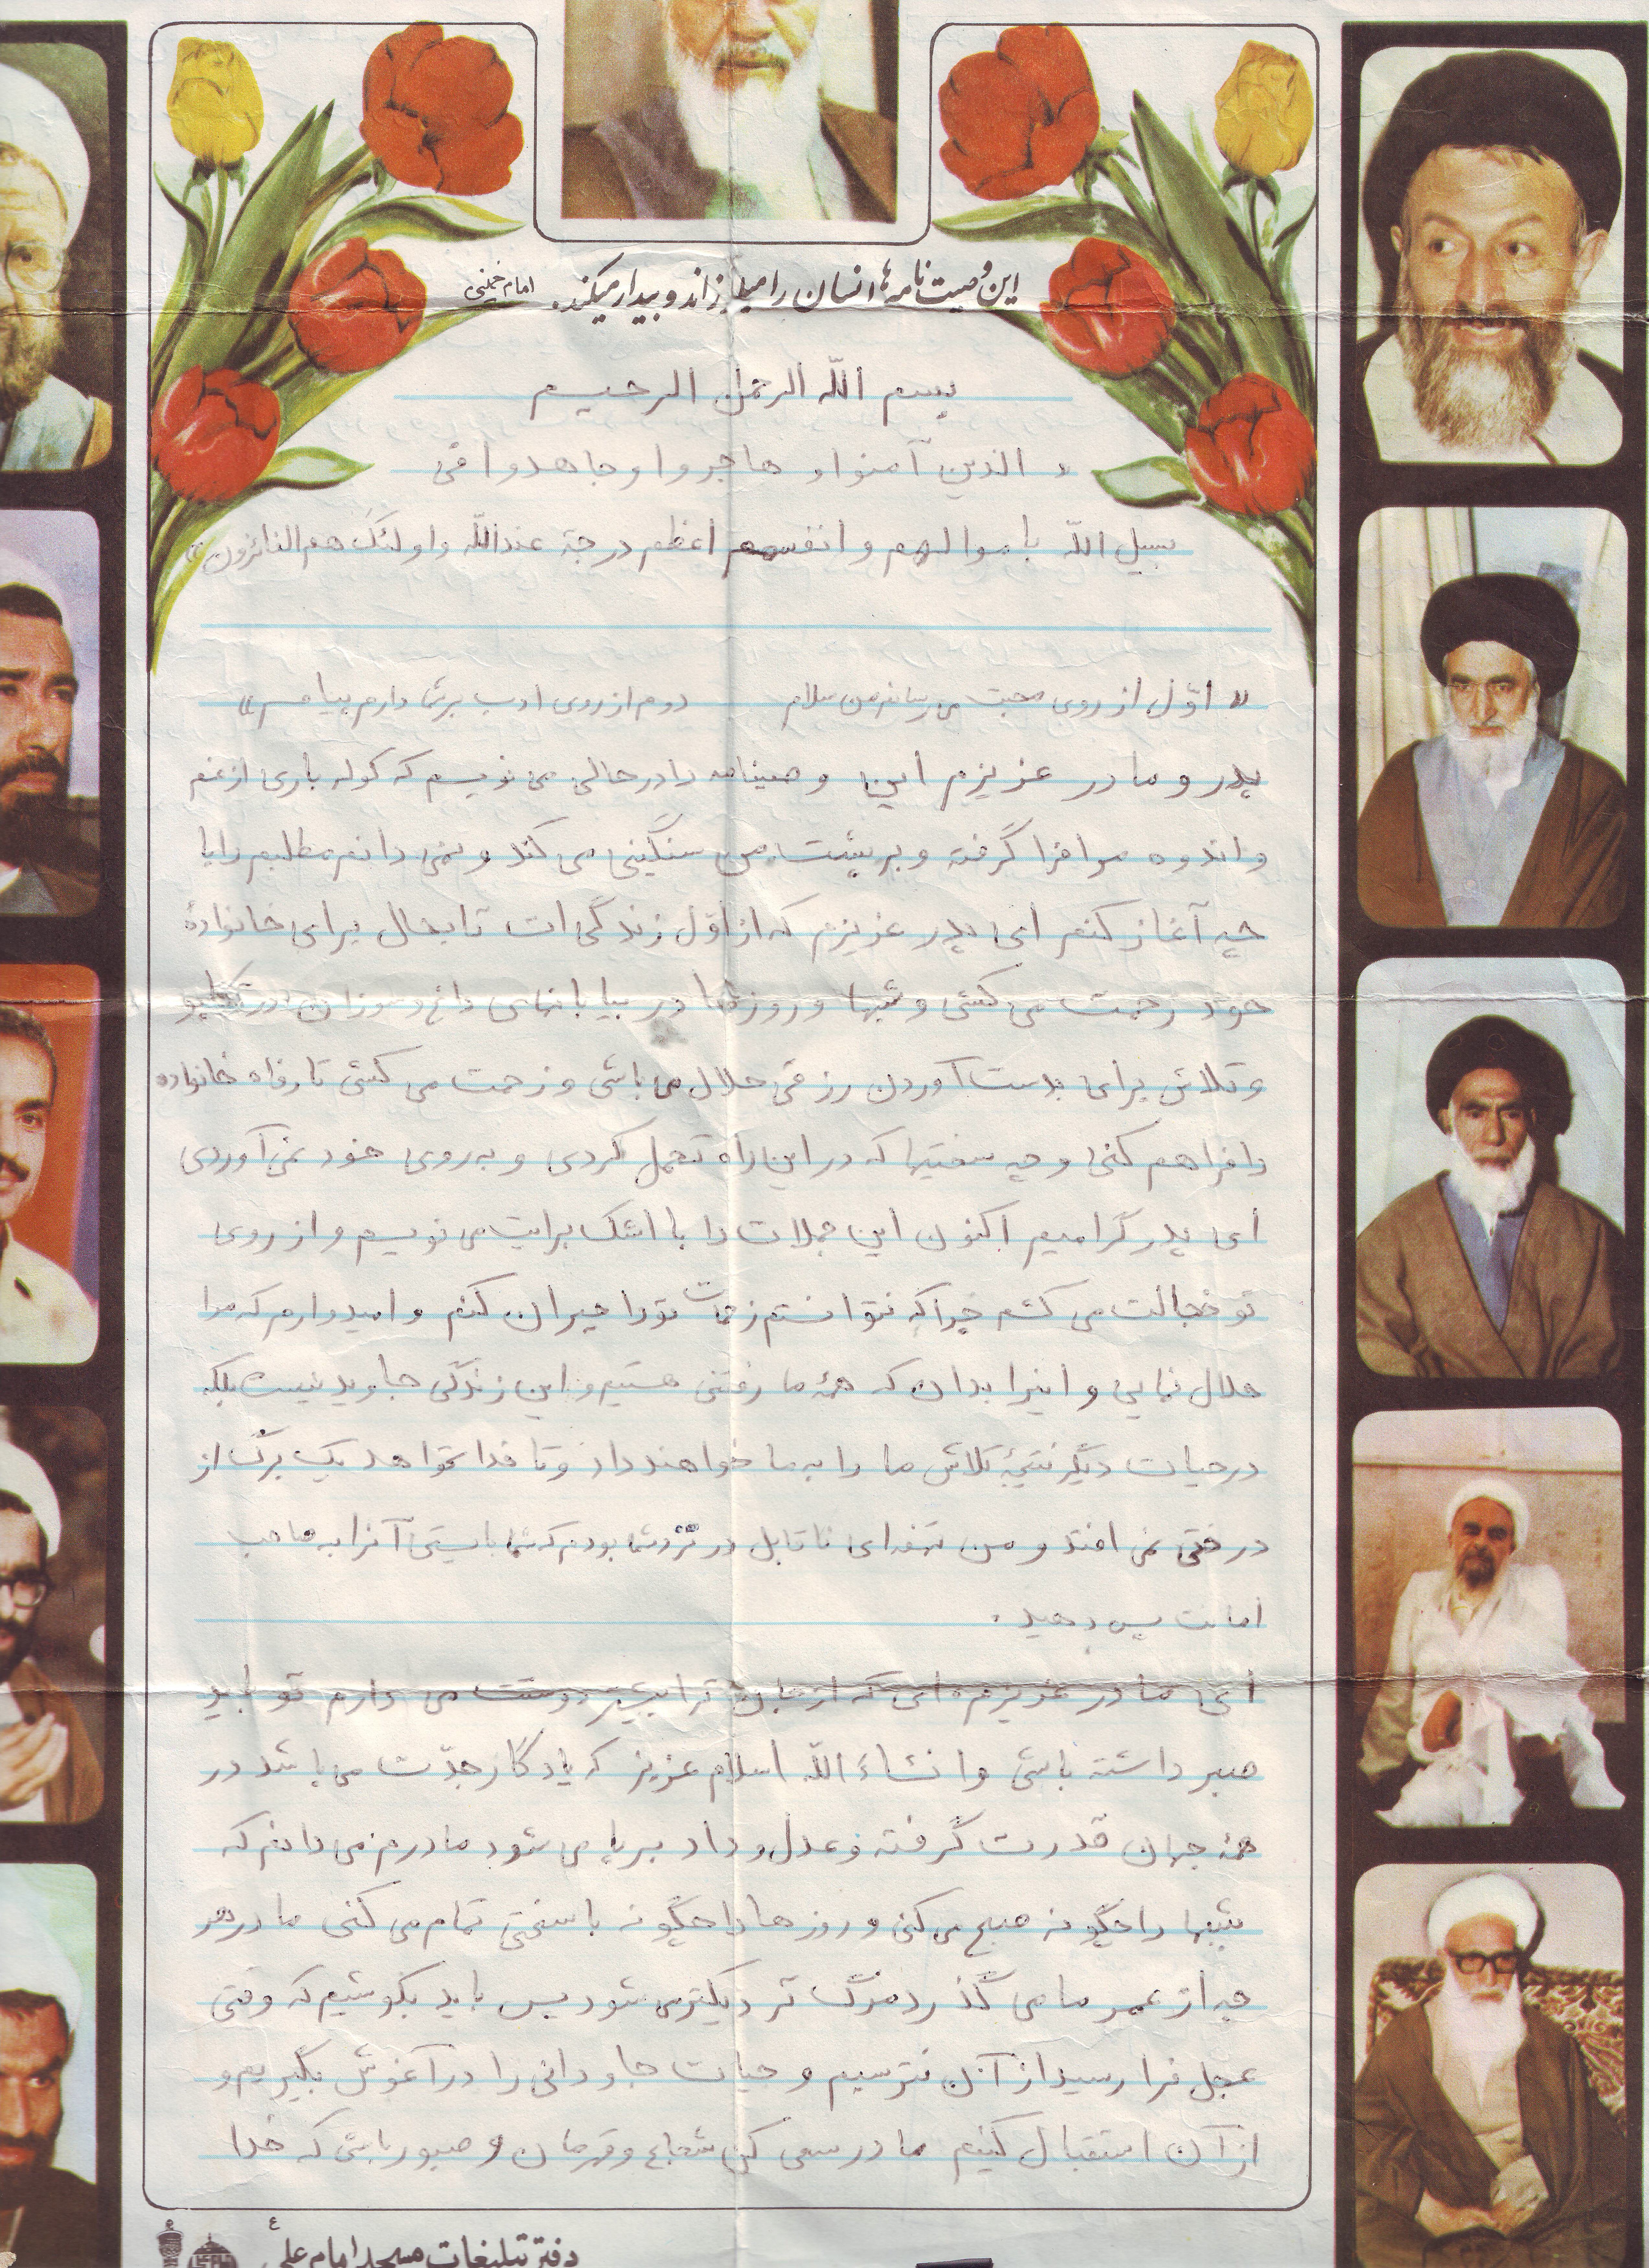 این وصیت نامه‌ها انسان را میلرزاند و بیدار میکند. امام خمینی
بسم الله الرحمن الرحیم
« الذین آمنوا و هاجروا و جاهدوا فی
سبیل الله باموالهم و انفسهم اعظم درجة عندالله و اولئک هم الفائزون »
« اوّل از روی محبت می رسانم من سلام دوم از روی ادب بر شما دارم پیام »
پدر و مادر عزیزم این وصیتنامه را در حالی می نویسم که کوله باری از غم
و اندوه مرا فرا گرفته و بر پشت من سنگینی می کند و نمی دانم مطلبم را با
چه آغاز کنم ای پدر عزیزم که از اوّل زندگی ات تا بحال برای خانوادهٔ
خود زحمت می کشی و شبها و روزها در بیابانهای داغ و سوزان در تکاپو
و تلاش برای بدست آوردن رزقی حلال می باشی و زحمت می کشی تا رفاه خانواده
را فراهم کنی و چه سختیها که در این راه تحمل کردی و به روی خود نمی آوردی
ای پدر گرامیم اکنون این جملات را با اشک برایت می نویسم و از روی
تو خجالت می کشم چرا که نتوانستم زحمات تو را جبران کنم و امیدوارم که مرا
حلال نمایی و اینرا بدان که همهٔ ما رفتنی هستیم و این زندگی جاوید نیست بلکه
در حیات دیگر نتیجهٔ تلاش ما را به ما خواهند داد و تا خدا نخواهد یک برگ از
درختی نمی افتد و من تحفه‌ای ناقابل در نزد شما بودم که شما بایستی آنرا به صاحب
امانت پس دهید.
ای مادر عزیزم ای که از جان ترا بیشتر دوست می دارم تو باید
صبر داشته باشی و انشاءَ الله اسلام عزیز که یادگار جدّت می باشد در
همهٔ جهان قدرت گرفته و عدل و داد برپا می شود مادرم می دانم که
شبها را چگونه صبح می کنی و روزها را چگونه با سختی تمام می کنی مادر هر
چه از عمر ما می گذرد مرگ نزدیکتر می شود پس باید بکوشیم که وقتی
عجل فرا رسید از آن نترسیم و حیات جاودانی را در آغوش بگیریم و
از آن استقبال کنیم مادر سعی کن شجاع و قهرمان و صبور باشی که خدا
دفتر تبلیغات مسجد امام علی ع